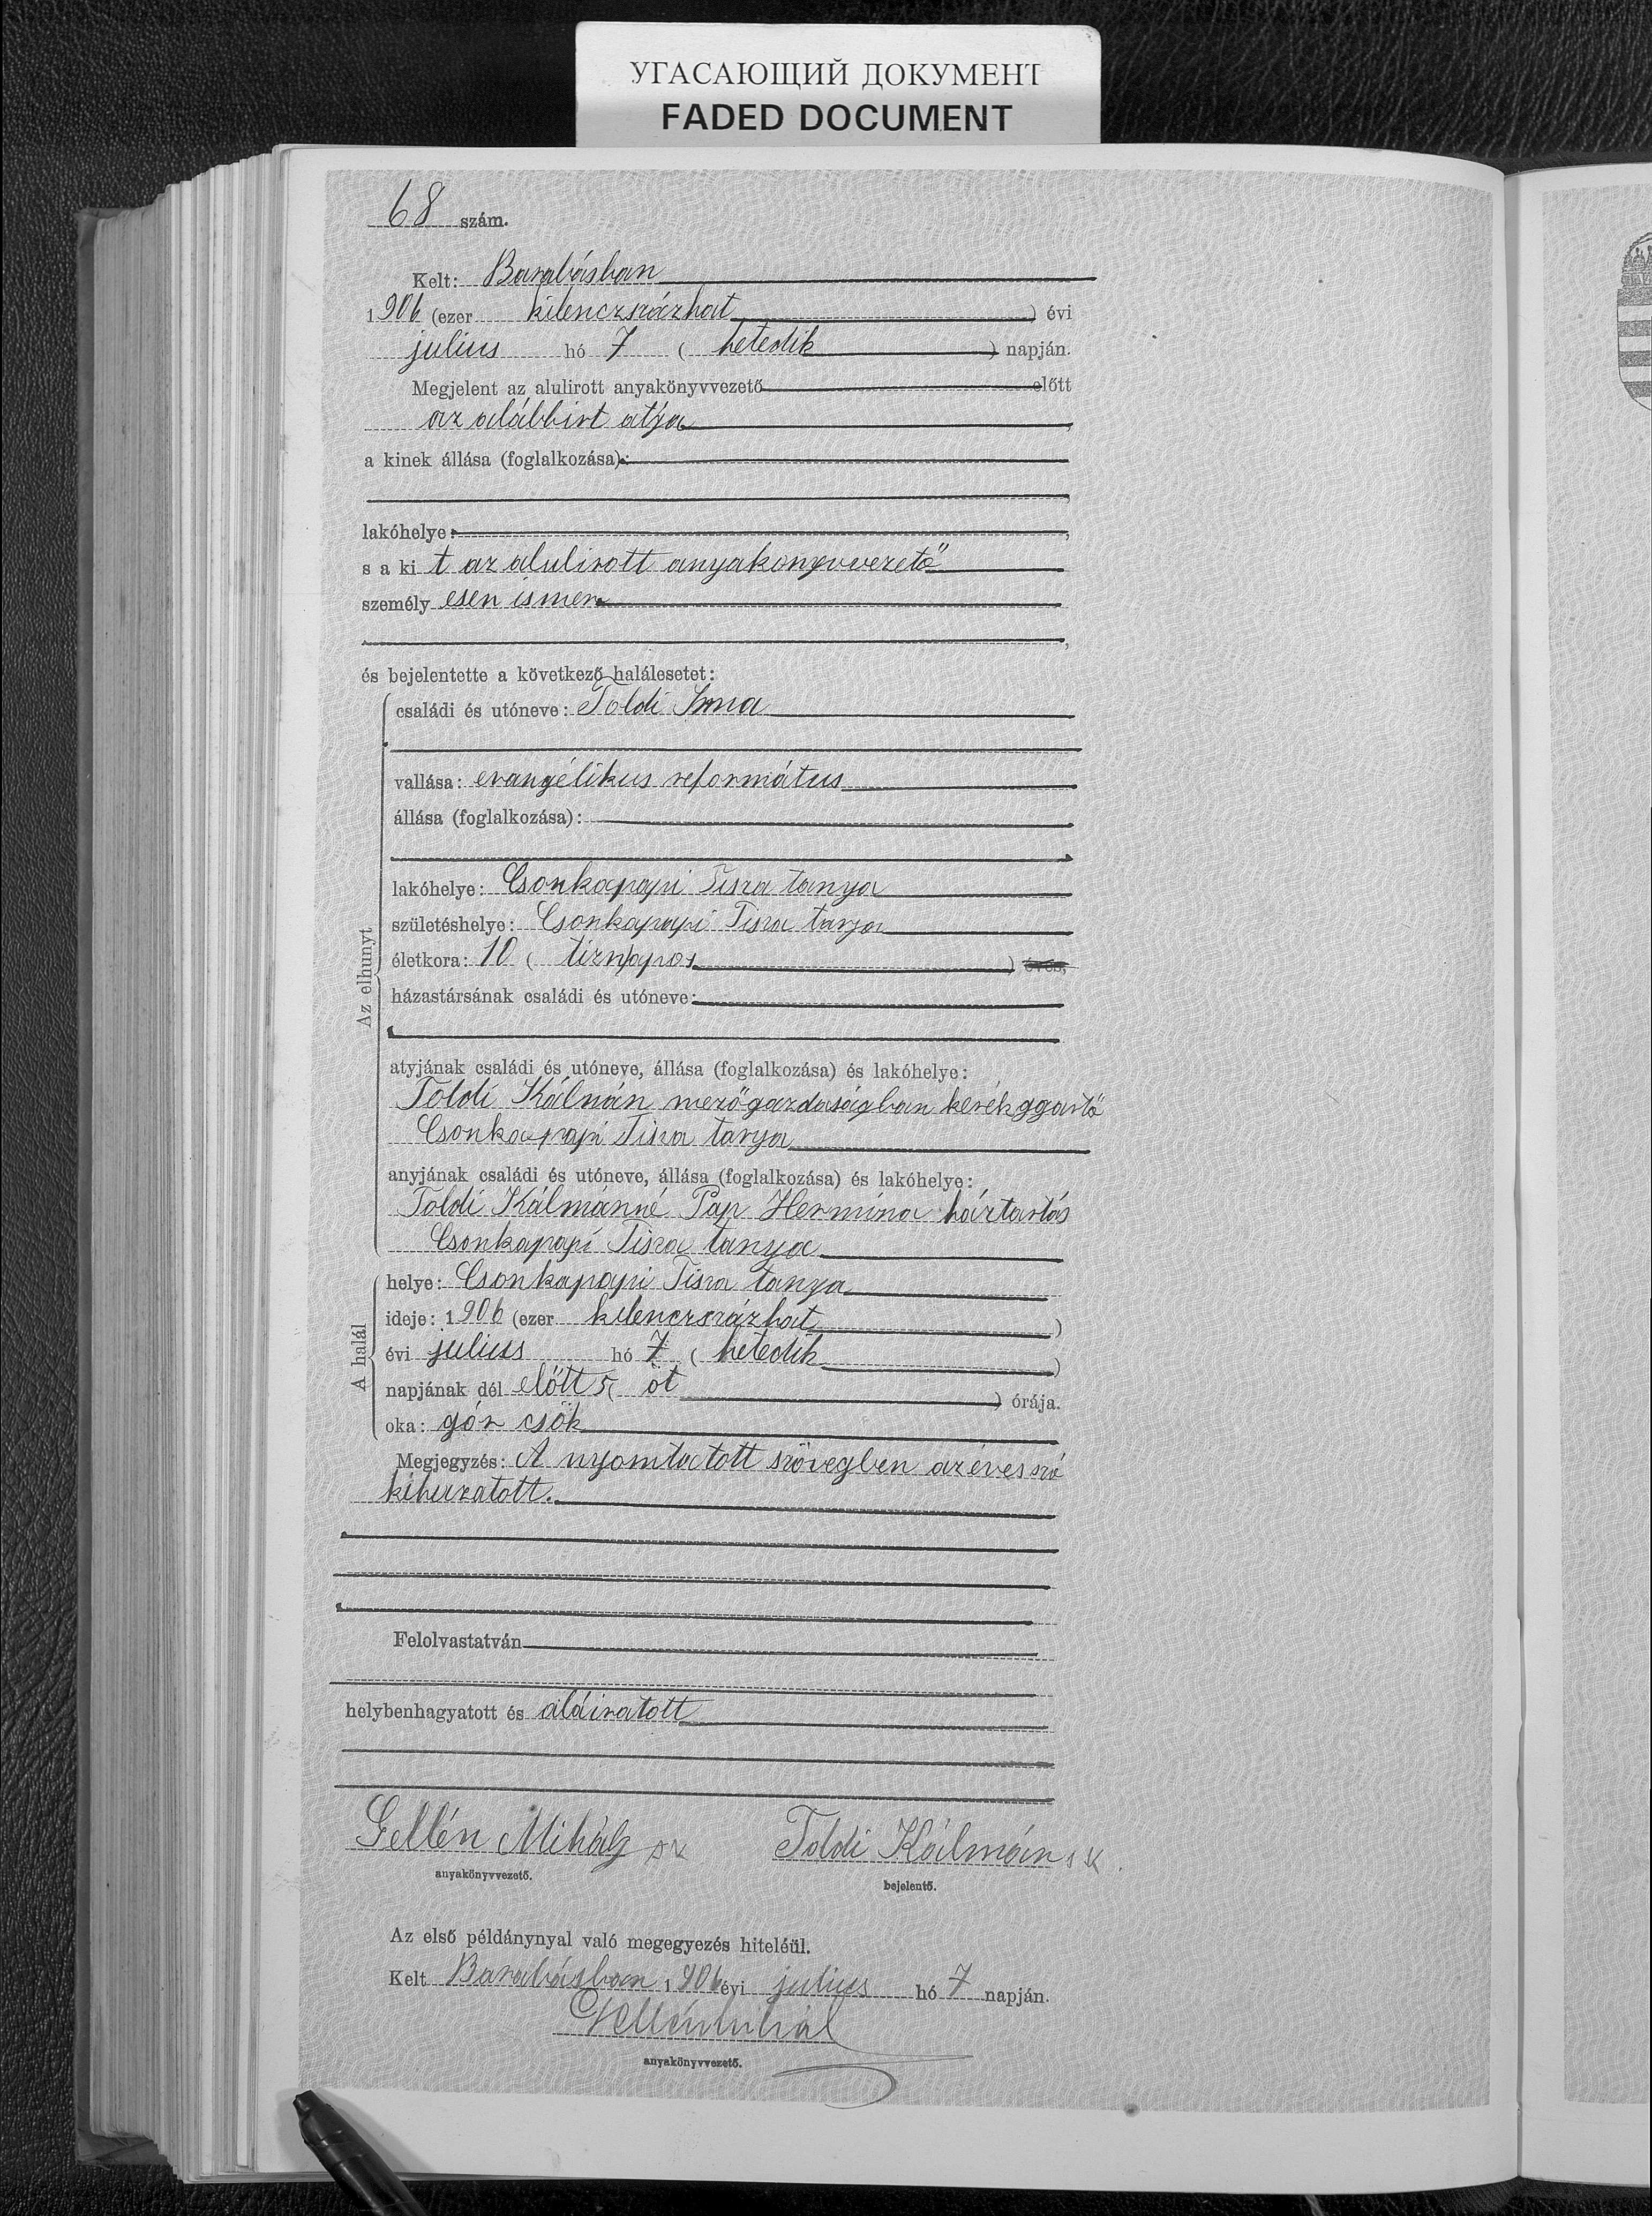 УГАСАЮЩИЙ ДОКУМЕНТ
FADED DOCUMENT
68 szám.
Kelt: Barabásban
1906 (ezer kilenczszázhat) évi
julius hó 7 (hetedik) napján.
Megjelent az alulirott anyakönyvvezető előtt
az alábbirt atyja,
a kinek állása (foglalkozása):
lakóhelye:,
s a kit az alulirott anyakönyvvezető
személyesen ismer,
és bejelentette a következő halálesetet:
Az elhunyt
családi és utóneve: Toldi Irma
vallása: evangélikus református
állása (foglalkozása):
lakóhelye: Csonkapapi Tisza tanya
születéshelye: Csonkapapi Tisza tanya
életkora: 10 (tiznapos) éves,
házastársának családi és utóneve:
atyjának családi és utóneve, állása (foglalkozása) és lakóhelye:
Toldi Kálmán mezőgazdaságban kerékgyártó
Csonkapapi Tisza tanya
anyjának családi és utóneve, állása (foglalkozása) és lakóhelye:
Toldi Kálmánné Pap Hermina háztartás
Csonkapapi Tisza tanya
A halál
helye: Csonkapapi Tisza tanya
ideje: 1906 (ezer kilenczszázhat)
évi julius hó 7 (hetedik)
napjának dél előtt 5 (öt) órája.
oka: gör csök
Megjegyzés: A nyomtatott szövegben az éves szó
kihuzatott.
Felolvastatván
helybenhagyatott és aláiratott
Gellén Mihály sk Toldi Kálmán sk.
anyakönyvvezető. bejelentő.
Az első példánynyal való megegyezés hiteléül.
Kelt Barabásban 1906 évi julius hó 7 napján.
Gellén Mihál
anyakönyvvezető.